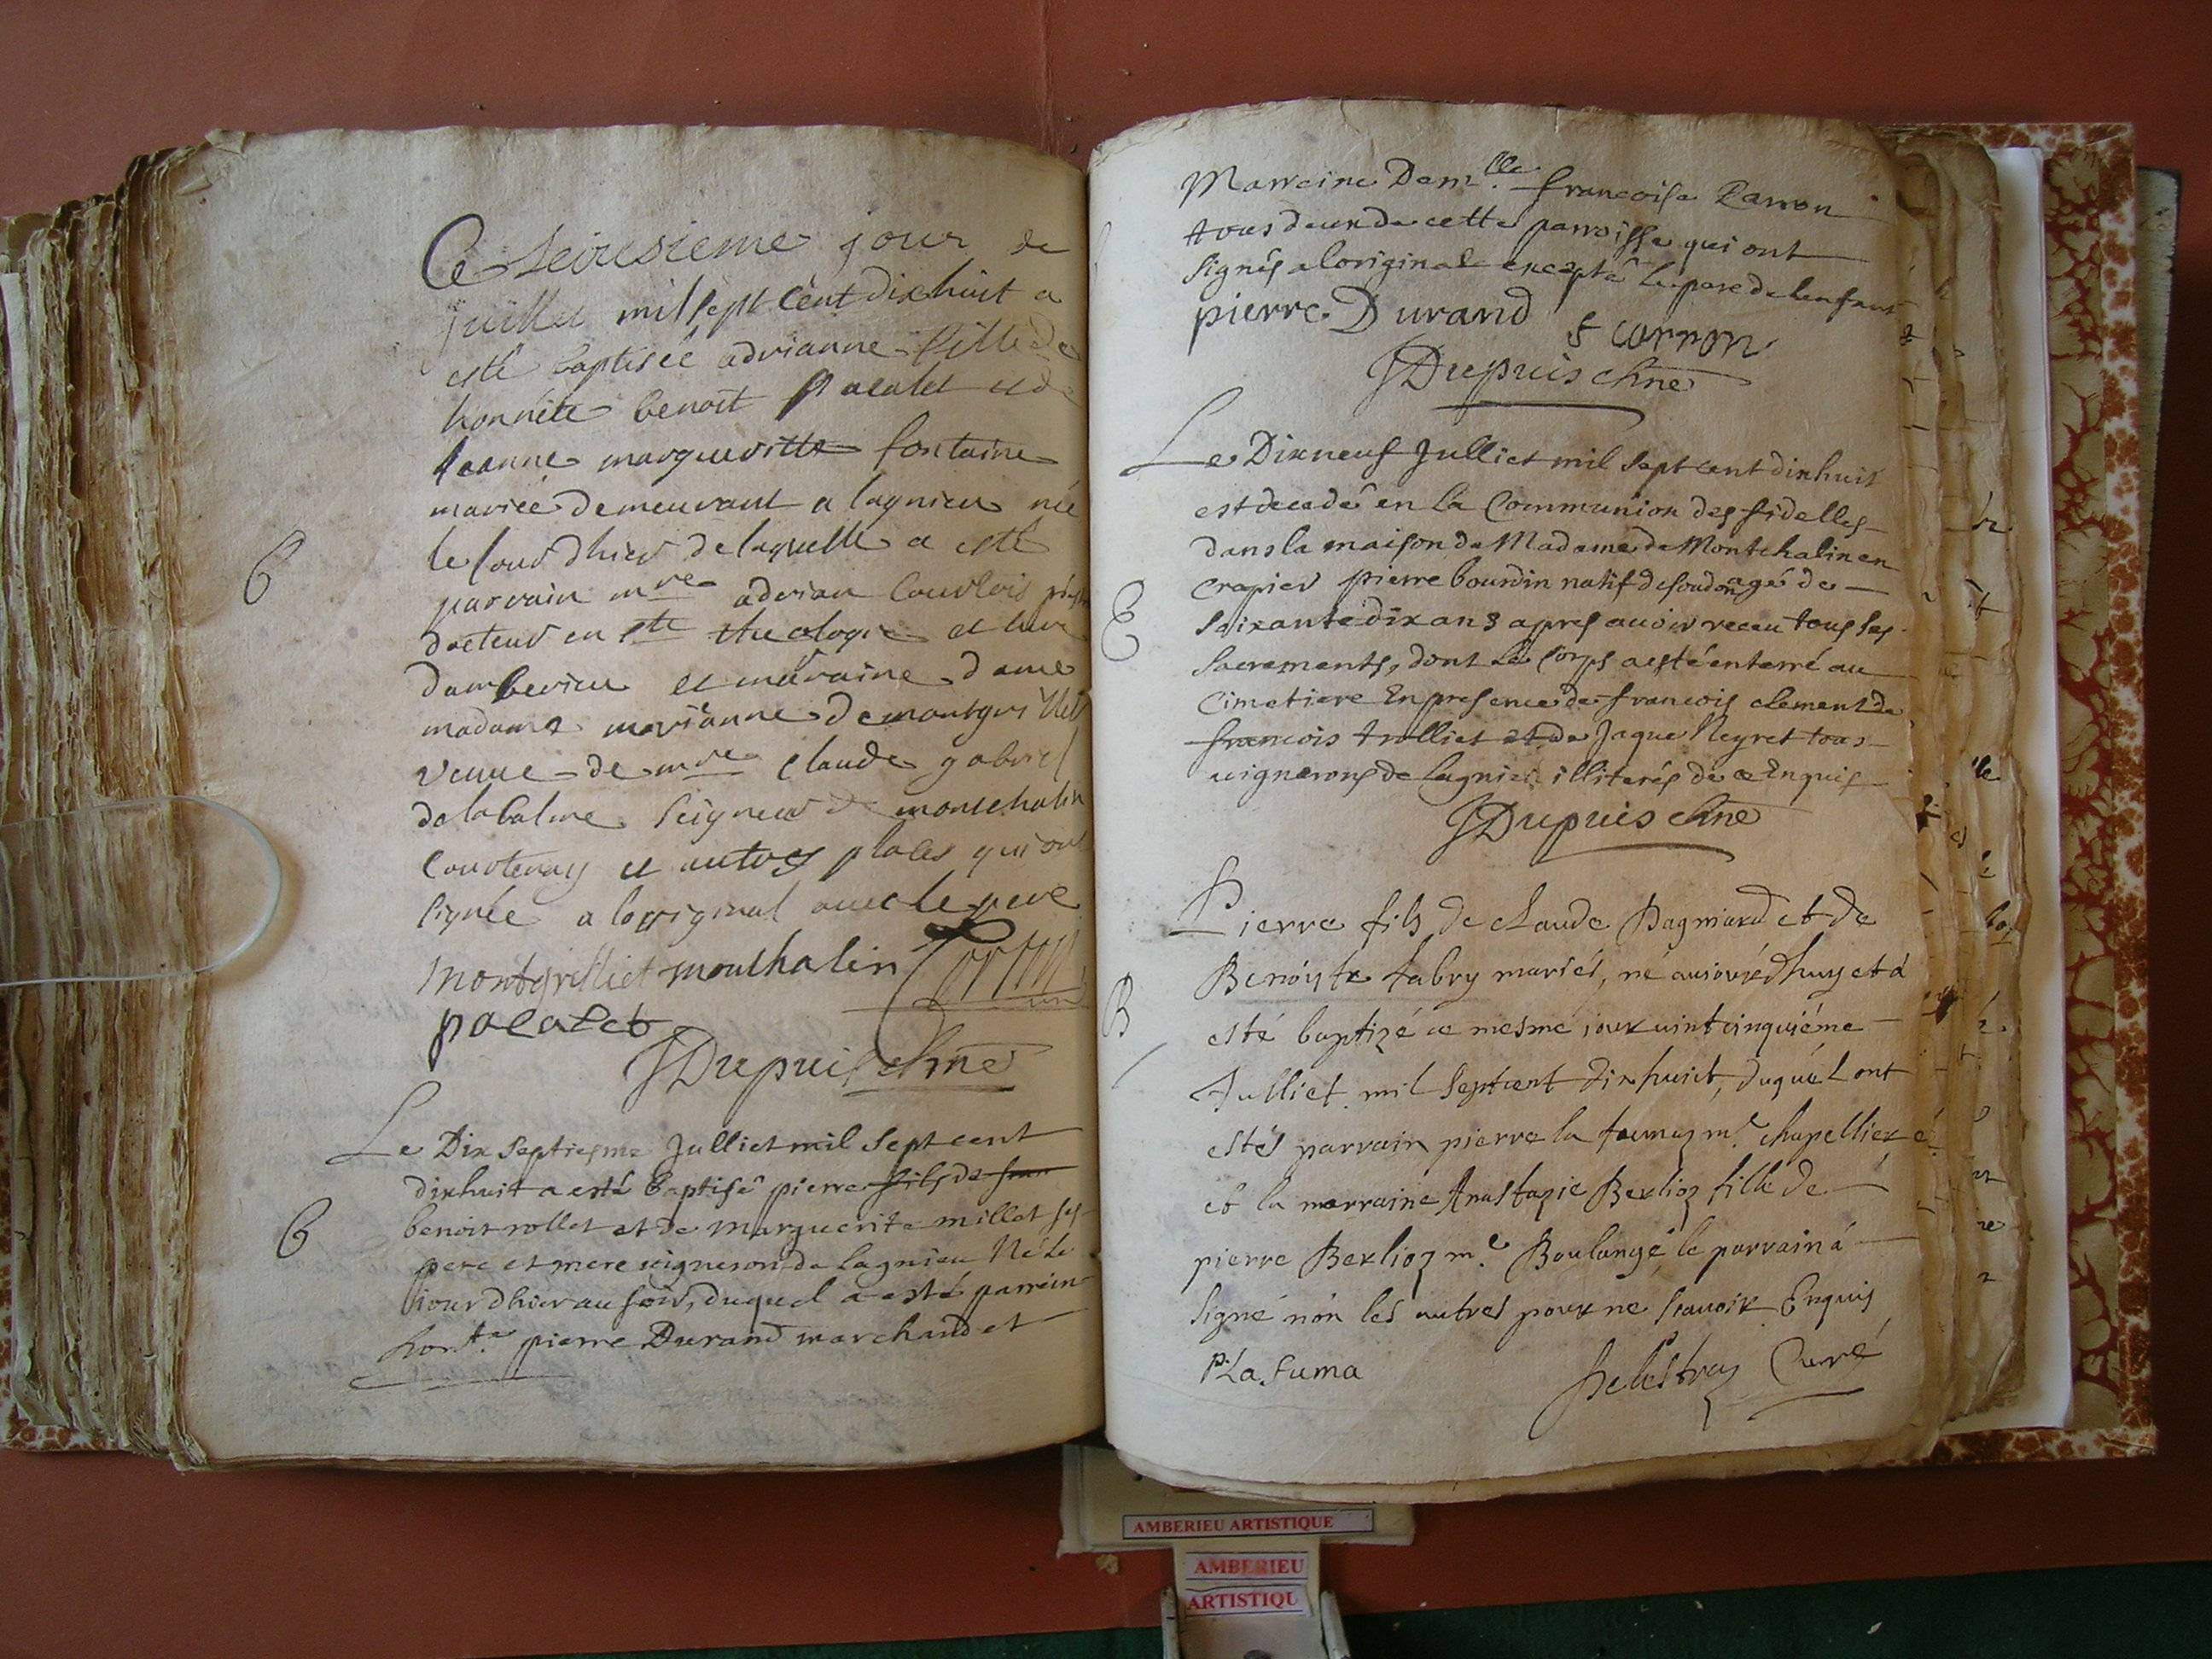 Ce seiziesieme jour de
juillet mil sept cent dixhuit a
esté baptisée adrianne fille de
honnéte benoit pacalet et de
Jeanne marguerite fontaine
mariée demeurant a lagnieu née
le jour dhier de laquelle a esté
parrain mre adrian Courtois
docteur en ste theologie et curé
damberieu et maraine dame
madame marianne de montgrillet
veuue de mre claude gabriel
de la balme Seigneur de montchalin
Courtenay et autres places qui ont
signée a lorriginal auec le pere
montgrilliet montchalin
pacalet
JDupuis chne
B
Le Dix septiesme Julliet mil sept cent
dixhuit a esté baptisé pierre fils de
benoit rollet et de marguerite millet ses
pere et mere uigneron de lagnieu Né le
jour dhier au soir, duquel a esté parrein
hont.e pierre Durand marchand et
B
Marreine Dem.lle francoise Carron
tous deux de cette parroisse qui ont
signés a loriginal excepté le pere de lenfant
pierre Durand f carron
JDupuis chne
Le Dixneuf Julliet mil sept cent dixhuit
est decedé en la Communion des fidelles
dans la maison de Madame de Montchalin en
crapier pierre bourdin natif de soudon agé de
soixante dix ans apres auoir receu tous ses
sacrements, dont le corps a esté enterré au
Cimetiere En presence de francois clement de
francois trolliet et de Jaque Neyret tous
uignerons de lagnieu illiterés de ce Enquis
JDupuis chne
E
Pierre fils de claude Pagniard et de
Benoiste fabry mariés, né aujourdhuy et à
esté baptizé ce mesme jour uint cinquiéme
Julliet mil sept cent dix huict, duquel ont
estés parrain pierre la fuma m.e chapellier et
et la marraine Anastazie Berlioz fille de
pierre Berlioz m.e Boulangé, le parrain à
signé non les autres pour ne scauoir Enquis
P. La fuma
Curé
B
AMBERIEU ARTISTIQUE
AMBERIEU
ARTISTIQU